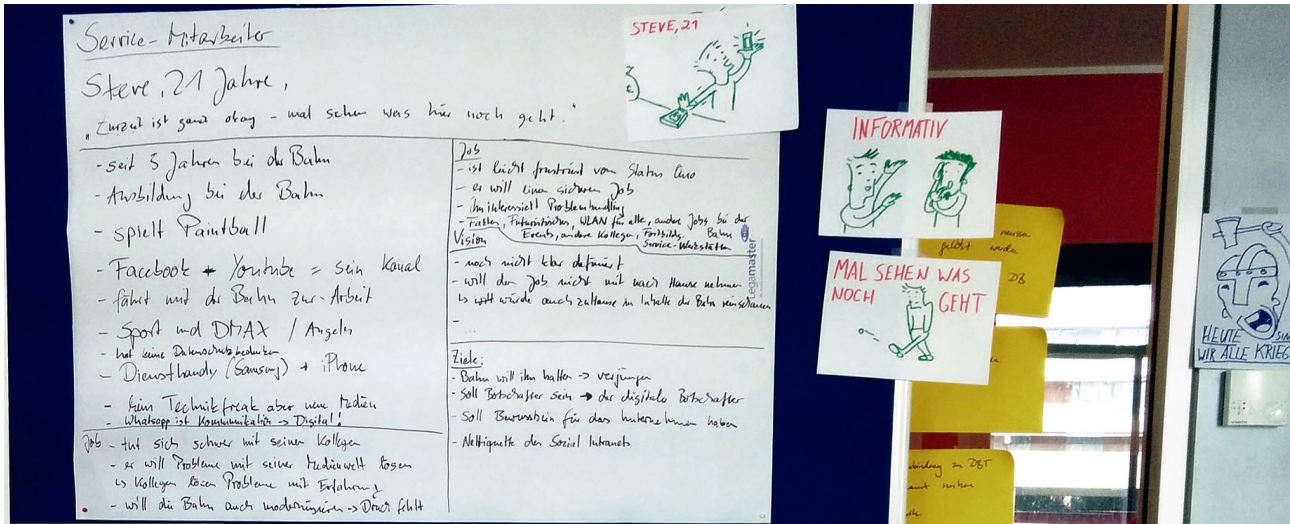 Service-Mitarbeiter
Steve, 21 Jahre,
"Zurzeit ist ganz okay – mal sehen was hier noch geht."
- seit 3 Jahren bei der Bahn
- Ausbildung bei der Bahn
- spielt Paintball
- Facebook + Youtube = sein Kanal
- fährt mit der Bahn zur Arbeit
- Sport und DMAX / Angeln
- hat keine Datenschutzbedenken
- Diensthandy (Samsung) + iPhone
- kein Technikfreak aber neue Medien
- Whatsapp ist Kommunikation -> Digital!
Job - tut sich schwer mit seinen Kollegen
- er will Probleme mit seiner Medienwelt lösen
↳ Kollegen lösen Probleme mit Erfahrung
- will die Bahn auch modernisieren -> Druck fehlt
Job
- ist leicht frustriert vom Status Quo
- er will einen sicheren Job
- ihn interessiert Problemhandling
- Fakten, Futuristisches, WLAN für alle, andere Jobs bei der Bahn
Events, andere Kollegen, Fortbildg.
Service-Werkstätten
Vision
- noch nicht klar definiert
- will den Job nicht mit nach Hause nehmen
↳ würde auch zuhause in Inhalte der Bahn reinschauen
- ...
Ziele:
- Bahn will ihn halten -> verjüngen
- Soll Botschafter sein -> der digitale Botschafter
- Soll Bewusstsein für das Unternehmen haben
- Nettiquette des Social Intranets
Legamaster
STEVE, 21
INFORMATIV
MAL SEHEN WAS
NOCH GEHT
müssen
gelöst werden
DB
DBT
nutzen
HEUTE SIN
WIR ALLE KRIEG